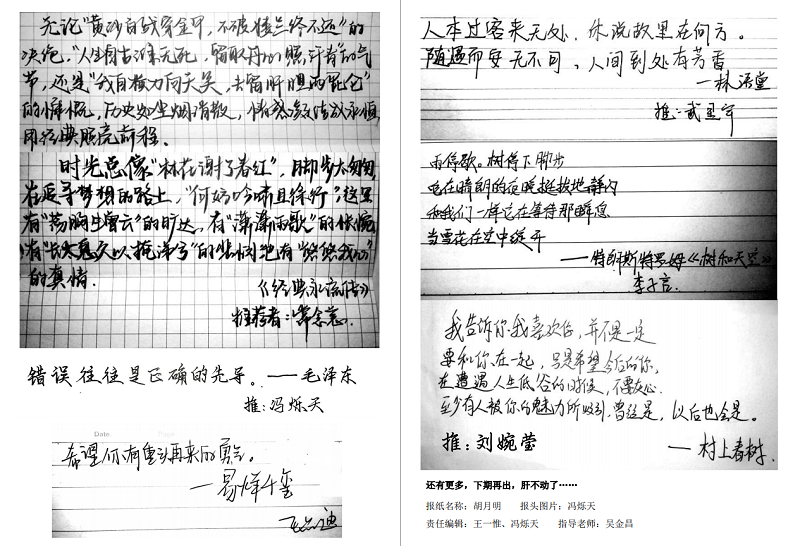 无论“黄沙百战穿金甲，不破楼兰终不还”的
决绝，“人生自古谁无死，留取丹心照汗青”的气
节，还是“我自横刀向天笑，去留肝胆两昆仑”
的慷慨，历史如尘烟消散，情感激活成永恒，
用经典照亮前程。
时光总像“林花谢了春红”，脚步太匆匆
在追寻梦想的路上，“何妨吟啸且徐行”，这里
有“荡胸生曾云”的旷达，有“潇潇雨歇”的
有“长太息以掩涕兮”的悲悯，也有“悠悠我心”
的真情。
《经典永流传》
推荐者：常念慈
错误往往是正确的先导。——毛泽东
推：冯烁天
Date.
希望你有重头再来的勇气。
——易烊千玺
人本过客来无处，休说故里在何方。
随遇而安无不可，人间到处有芳香
——林语堂
推：武星宇
雨停歇。树停下脚步
它在晴朗的夜晚挺拔地静闪
和我们一样它在等待那瞬息
当雪花在空中绽开
——特朗斯特罗姆《树和天空》
李子言
我告诉你我喜欢你，并不是一定
要和你在一起，只是希望今后的你，
在遭遇人生低谷的时候，不要灰心
至少有人被你的魅力所吸引，曾经是，以后也会是。
推：刘婉莹
——村上春树
还有更多，下期再出，肝不动了……
报纸名称：胡月明 报头图片：冯烁天
责任编辑：王一惟、冯烁天 指导老师：吴金昌